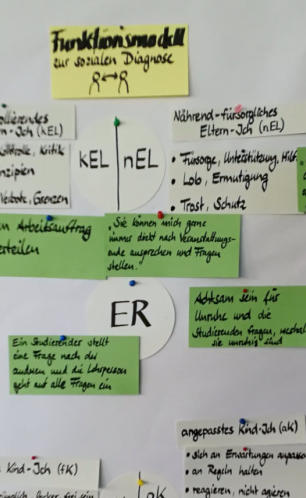 Funktionsmodell
zur sozialen Diagnose
ollierendes
rn-Ich (kEL)
Kontrolle, Kritik
nzipien
Verbote, Grenzen
kEL nEL
Nährend-fürsorgliches
Eltern-Ich (nEL)
• Fürsorge, Unterstützung, Hilf
• Lob, Ermutigung
• Trost, Schutz
n Arbeitsauftrag
erteilen
• Sie können mich gerne
immer direkt nach Veranstaltungs-
ende ansprechen und Fragen
stellen.
ER
Achtsam sein für
Unruhe und die
Studierenden fragen, weshalb
sie unruhig sind
Ein Studierender stellt
eine Frage nach der
anderen und die Lehrperson
geht auf alle Fragen ein
angepasstes Kind-Ich (aK)
• sich an Erwartungen anpassen
• an Regeln halten
• reagieren, nicht agieren
s Kind-Ich (fK)
aK